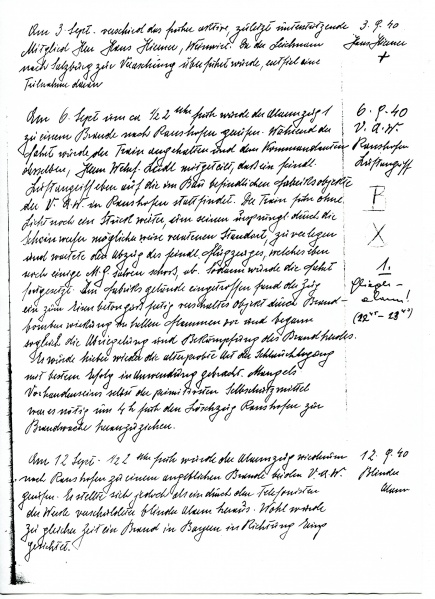 Am 3 Sept. verschied das frühere aktive, zuletzt unterstützende
Mitglied Herr Hans Hiemer, Weinwirt. Da der Leichnam
nach Salzburg zur Verarschung überführt wurde, entfiel eine
Teilnahme daran
3. 9. 40
Hans Hiemer
+
Am 6. Sept um ca 1/2 2 Uhr früh wurde der Alarmzug 1
zu einem Brande nach Ranshofen gerufen. Während der
Fahrt wurde der Train angehalten und dem Kommandanten
desselben, Herrn Wehrf. Leidl mitgeteilt, daß ein feindl.
Luftangriff eben auf die im Bau befindlichen Fabriksobjekte
der V. A. W. in Ranshofen stattfindet. Der Train fuhr ohne
Licht noch ein Stück weiter, um seinen ursprüngl. durch die
Scheinwerfer möglicherweise verratenen Standort, zu verlegen
und wartete den Abzug des feindl. Flugzeuges, welches eben
noch einige M. G. Salven schoß, ab. Sodann wurde die Fahrt
fortgesetzt. Am Fabriksgelände eingetroffen fand der Zug
ein zum Eisenbetongerüst fertig verschaltes Objekt durch Brand-
bombenwirkung in hellen Flammen vor und begann
sogleich die Abriegelung und Bekämpfung des Brandherdes.
Es wurde hiebei wieder die alterprobte Art des Schlauchlegens
mit bestem Erfolg in Anwendung gebracht. Mangels
Vorhandenseins selbst der primitivsten Selbstschutzmittel
war es nötig um 4 h früh den Löschzug Ranshofen zur
Brandwache heranzuziehen.
6. 9. 40
V. A. W.
Ranshofen
Luftangriff
P
X
1.
Flieger-
alarm!
Am 12 Sept. 1/2 2 Uhr früh wurde der Alarmzug wiederum
nach Ranshofen zu einem angeblichen Brande bei den V. A. W.
gerufen. Es stellte sich jedoch als ein durch den Telefonisten
des Werks verschuldeter blinder Alarm heraus. Wohl wurde
zu gleicher Zeit ein Brand in Bayern in Richtung
gesichtet.
12. 9. 40
Blinder
Alarm